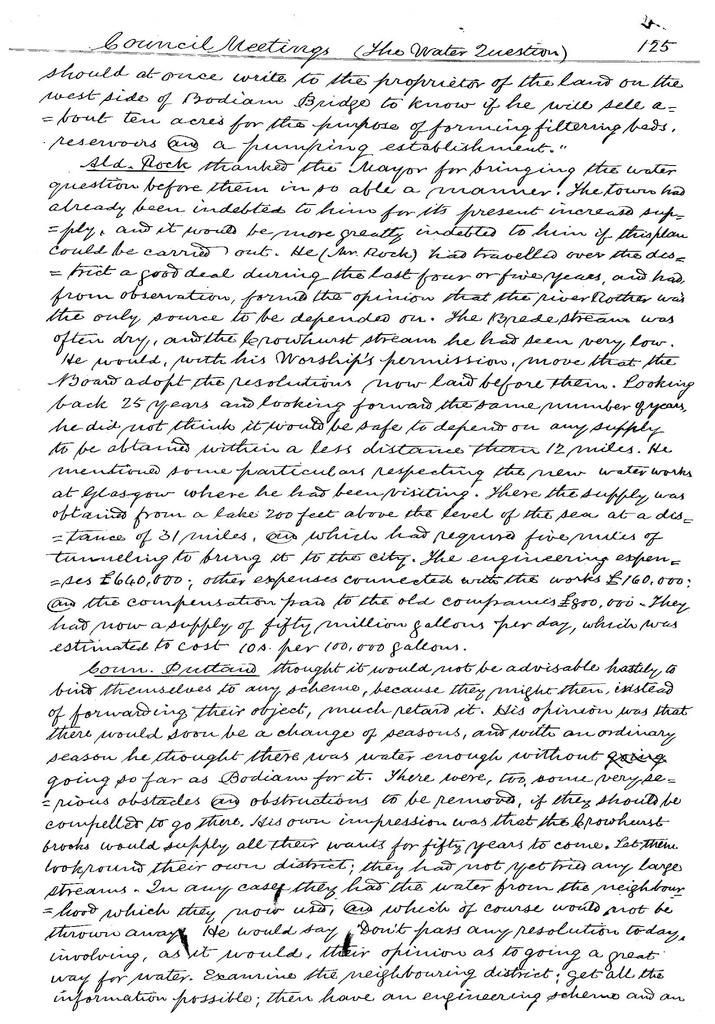 Council Meetings (The Water Question) 125
should at once write to the proprietor of the land on the
west side of Bodiam Bridge to know if he will sell a=
=bout ten acres for the purpose of forming filtering beds,
reservoirs and a pumping establishment."
Ald. Rock thanked the Mayor for bringing the water
question before them in so able a manner. The town had
already been indebted to him for its present increased sup=
=ply, and it would be more greatly indebted to him if this plan
could be carried out. He (Mr. Rock) had travelled over the dis=
=trict a good deal during the last four or five years, and had,
from observation, formed the opinion that the river Rother was
the only source to be depended on. The Brede stream was
often dry, and the Crowhurst stream he had seen very low.
He would, with his Worship's permission, move that the
Board adopt the resolutions now laid before them. Looking
back 25 years and looking forward the same number of years,
he did not think it would be safe to depend on any supply
to be obtained within a less distance than 12 miles. He
mentioned some particulars respecting the new waterworks
at Glasgow where he had been visiting. There the supply was
obtained from a lake 200 feet above the level of the sea at a dis=
=tance of 31 miles, and which had required five miles of
tunneling to bring it to the city. The engineering expen=
=ses £640,000; other expenses connected with the works £160,000;
and the compensation paid to the old companies £800,000. They
had now a supply of fifty million gallons per day, which was
estimated to cost 10s. per 100,000 gallons.
Coun. Putland thought it would not be advisable hastily to
bind themselves to any scheme, because they might then, instead
of forwarding their object, much retard it. His opinion was that
there would soon be a change of seasons, and with an ordinary
season he thought there was water enough without going
going so far as Bodiam for it. There were, too, some very se=
=rious obstacles and obstructions to be removed, if they should be
compelled to go there. His own impression was that the Crowhurst
brooks would supply all their wants for fifty years to come. Let them
look round their own district; they had not yet tried any large
streams. In any case, they had the water from the neighbour=
=hood which they now used, and which of course would not be
thrown away. He would say Don't pass any resolution today,
involving, as it would, their opinion as to going a great
way for water. Examine the neighbouring district; get all the
information possible; then have an engineering scheme and an